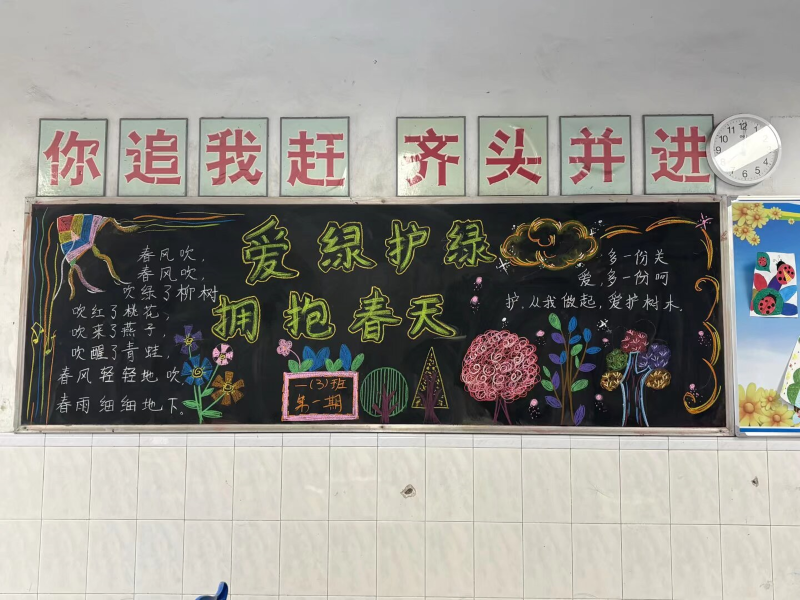 你追我赶 齐头并进
爱绿护绿
拥抱春天
春风吹，
春风吹，
吹绿了柳树
吹红了桃花，
吹来了燕子，
吹醒了青蛙，
春风轻轻地吹
春雨细细地下。
一(3)班
第一期
多一份关
爱，多一份呵
护，从我做起，爱护树木。